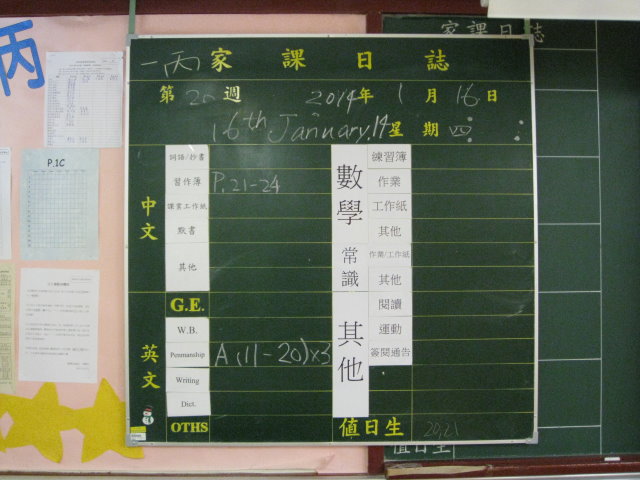 丙
P.1C
家課日誌
一丙家課日誌
第20週 2014年1月16日
16th January, 14 星期四
中文
詞語/抄書
習作簿 P.21-24
課業工作紙
默書
其他
G.E.
英文
W.B.
Penmanship A (11-20)x3
Writing
Dict.
OTHS
數學
練習簿
作業
工作紙
其他
常識
作業/工作紙
其他
其他
閱讀
運動
簽閱通告
值日生 20,21
值日生